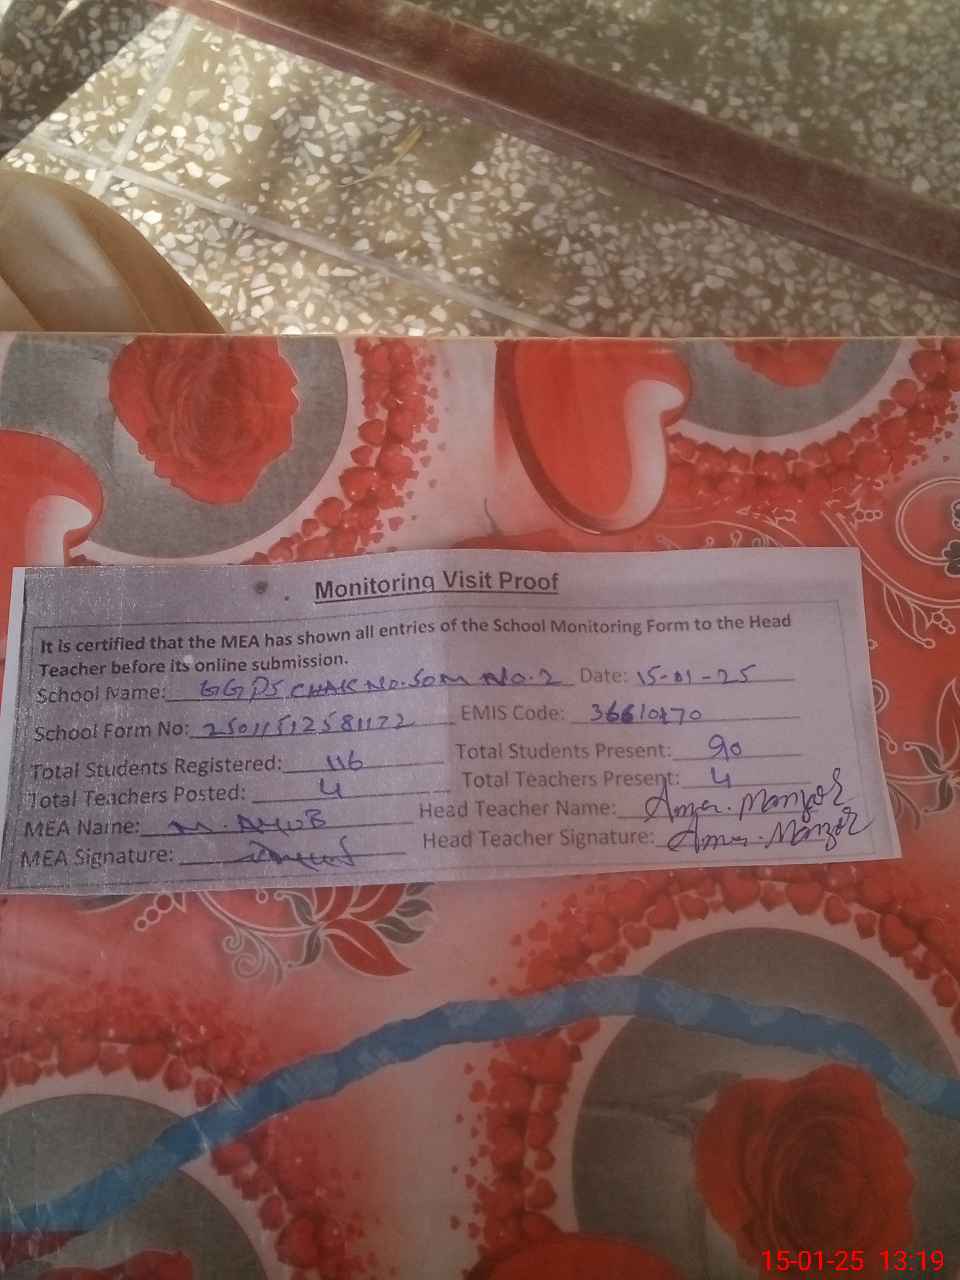 Monitoring Visit Proof
It is certified that the MEA has shown all entries of the School Monitoring Form to the Head
Teacher before its online submission.
School Name: GGPS CHAK NO. 50M NO. 2 Date: 15-01-25
School Form No: EMIS Code:
Total Students Registered: 116 Total Students Present: 90
Total Teachers Posted: 4 Total Teachers Present: 4
MEA Name: M. AYUB Head Teacher Name:
MEA Signature: Head Teacher Signature:
15-01-25 13:19